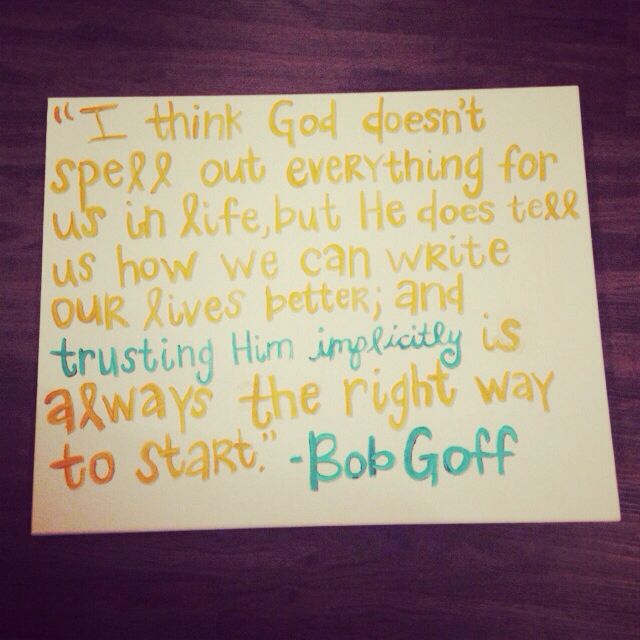 "I think God doesn't
spell out everything for
us in life, but He does tell
us how we can write
our lives better; and
trusting Him implicitly is
always the right way
to start." -Bob Goff